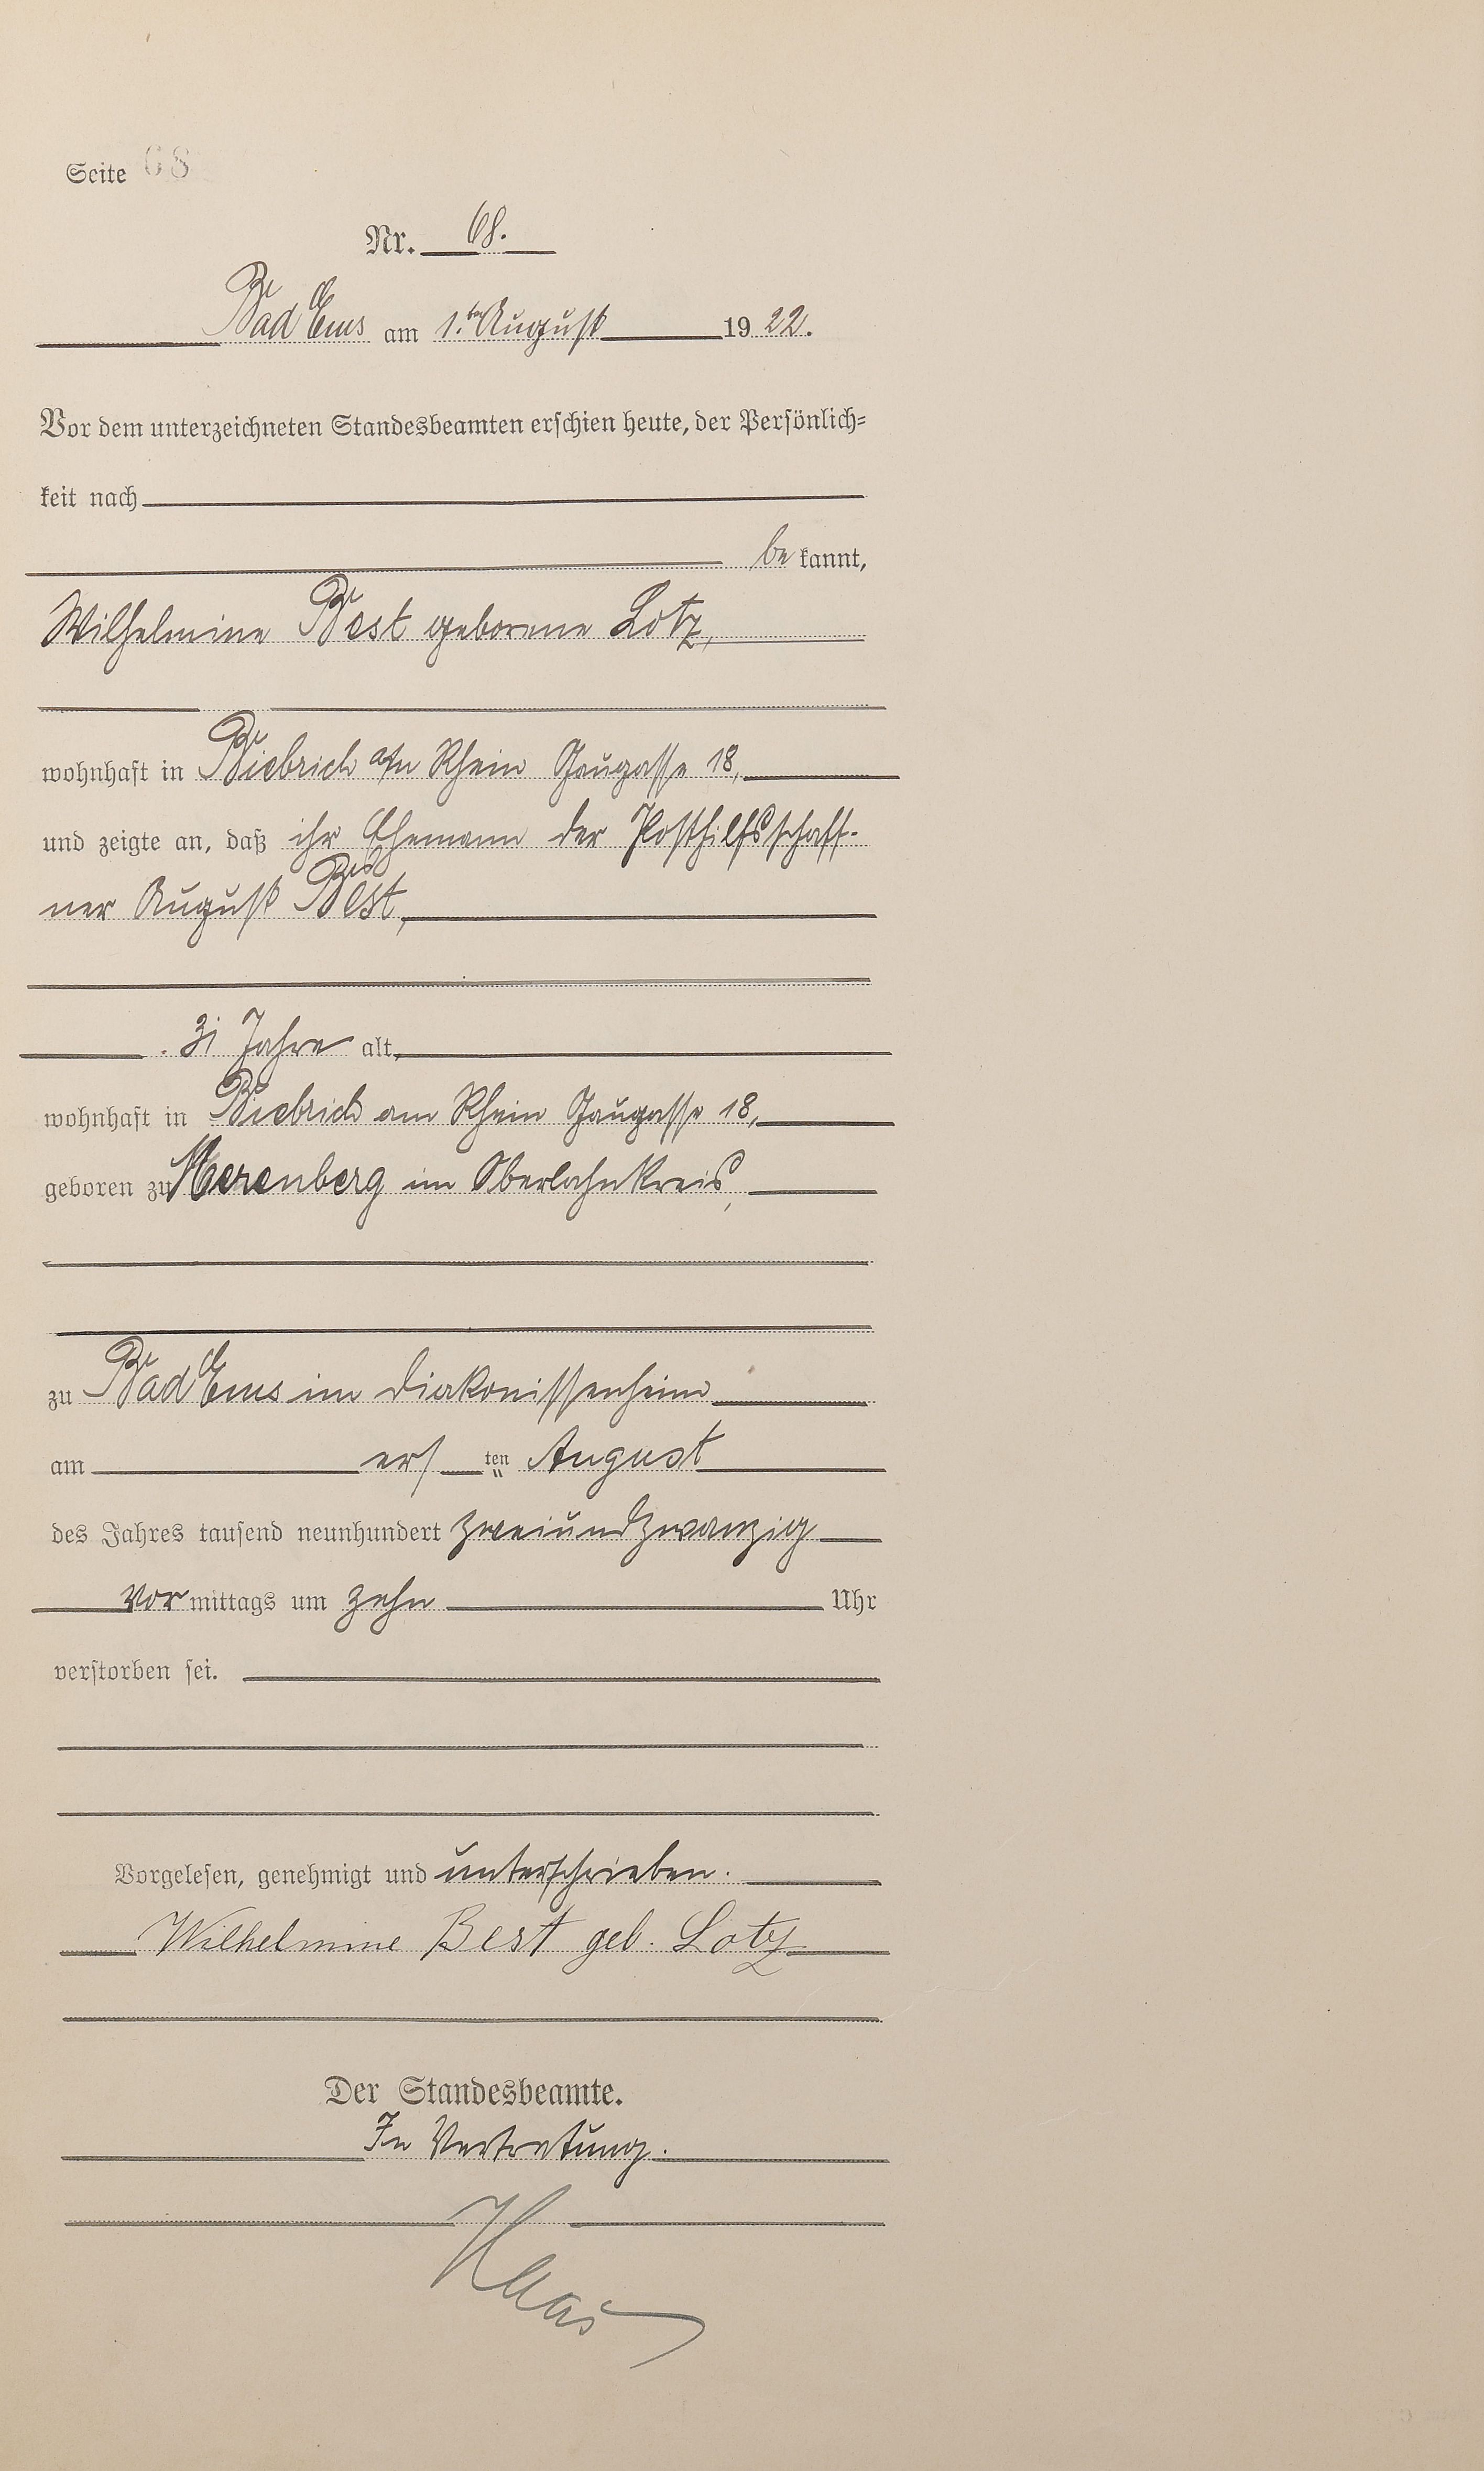 Seite 68
Nr. 68.
Bad Ems am 1.ten August 1922.
Vor dem unterzeichneten Standesbeamten erschien heute, der Persönlich=
keit nach
bekannt,
Wilhelmine Best geborene Lotz,
wohnhaft in Biebrich a/n Rhein Gaugasse 18,
und zeigte an, daß ihr Ehemann der Posthilfsschaff-
ner August Best,
31 Jahre alt,
wohnhaft in Biebrich am Rhein Gaugasse 18,
geboren zu Merenberg im Oberlahnkreis,
zu Bad Ems im Diakonissenheim
am ersten August
des Jahres tausend neunhundert zweiundzwanzig
vormittags um zehn Uhr
verstorben sei.
Vorgelesen, genehmigt und unterschrieben.
Wilhelmine Best geb. Lotz
Der Standesbeamte.
In Vertretung.
Haas